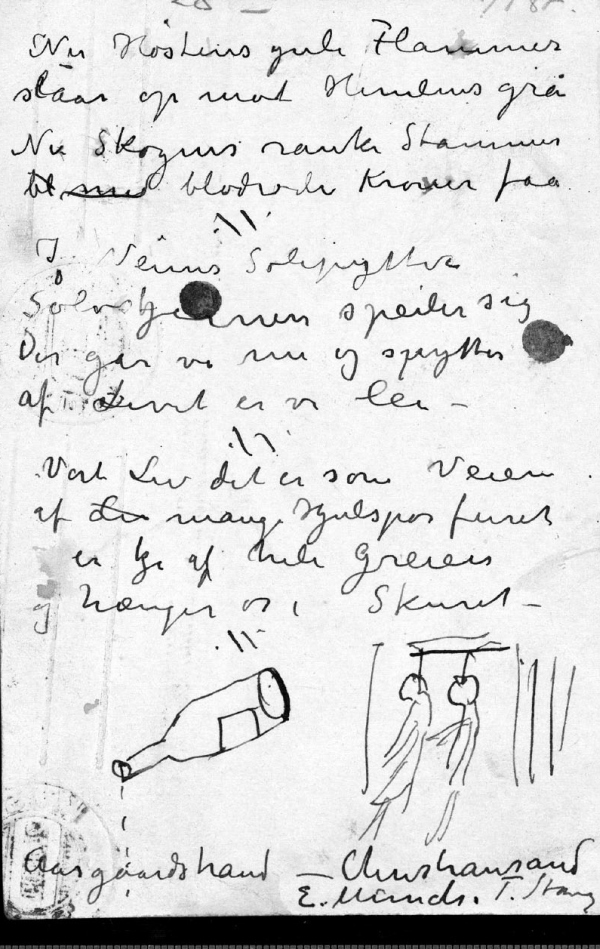 Nu Høstens gule Flammer
slåar op mod Himlens grå
Nu Skogens ranke Stammer
blodrøde Kroner faa
I Veiens Sølepytter
Sølvstjernen speiler sig
Der går vi nu og spytter
af Livet er vi lei –
Vort Liv det er som Veien
af mange Hjulspor furet
er kje af hele Greien
og hænger os i Skuret –
Aasgaardstrand – Christiansand
E. Munch. T. Stang